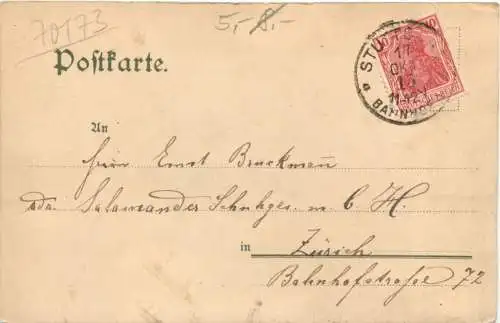 70173
5,- 8,-
Postkarte.
10
STU
17
OKT
11-12
a BAHNHOF
An
Herrn Ernst Bruckmann
Salamander Schuhges. m. b H.
in Zürich
Bahnhofstraße 72